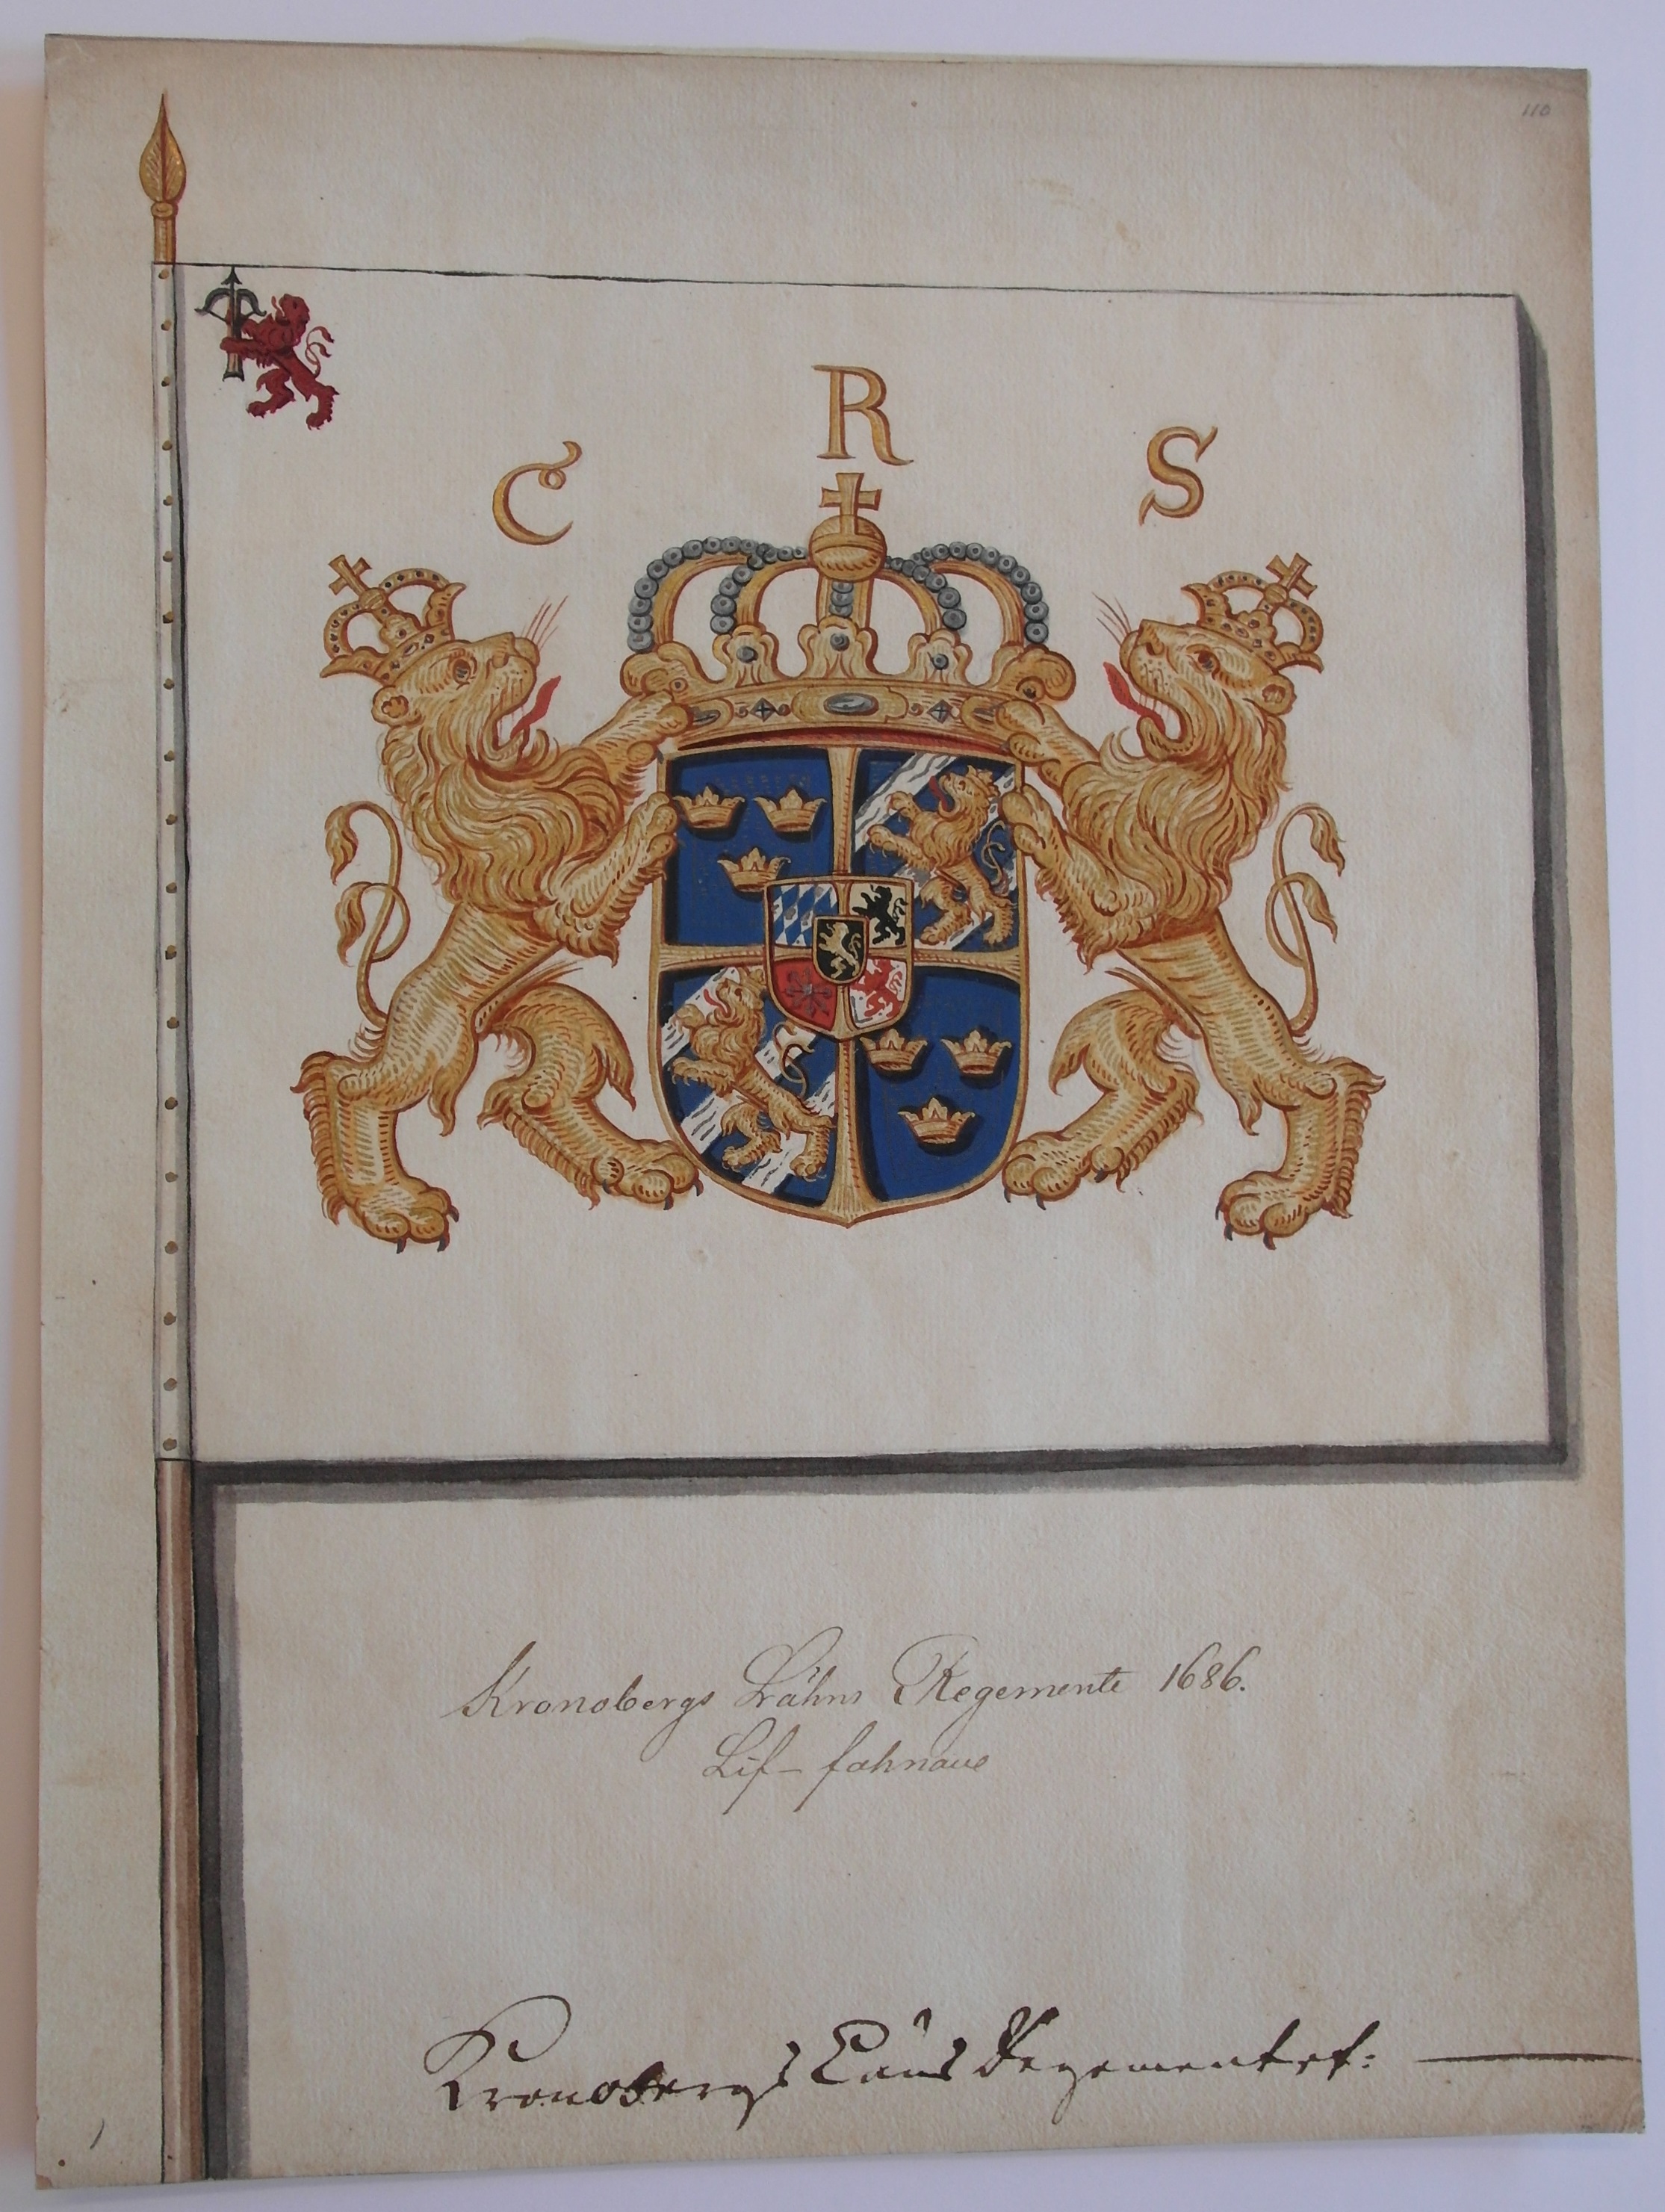 110
C R S
Kronobergs Lähns Regemente 1686.
Lif- fahnaue
Kronobergs Läns Regementet: